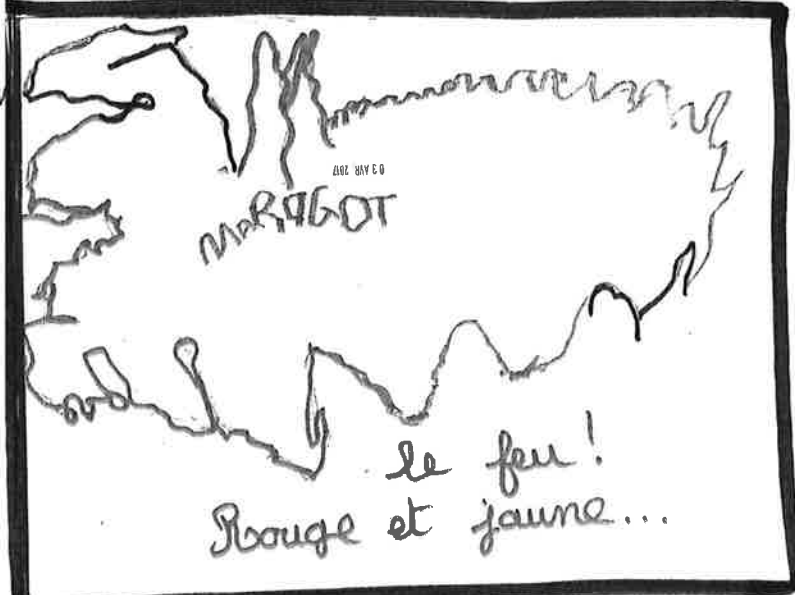 03 AVR 2017
MaRAGOT
le feu !
Rouge et jaune...